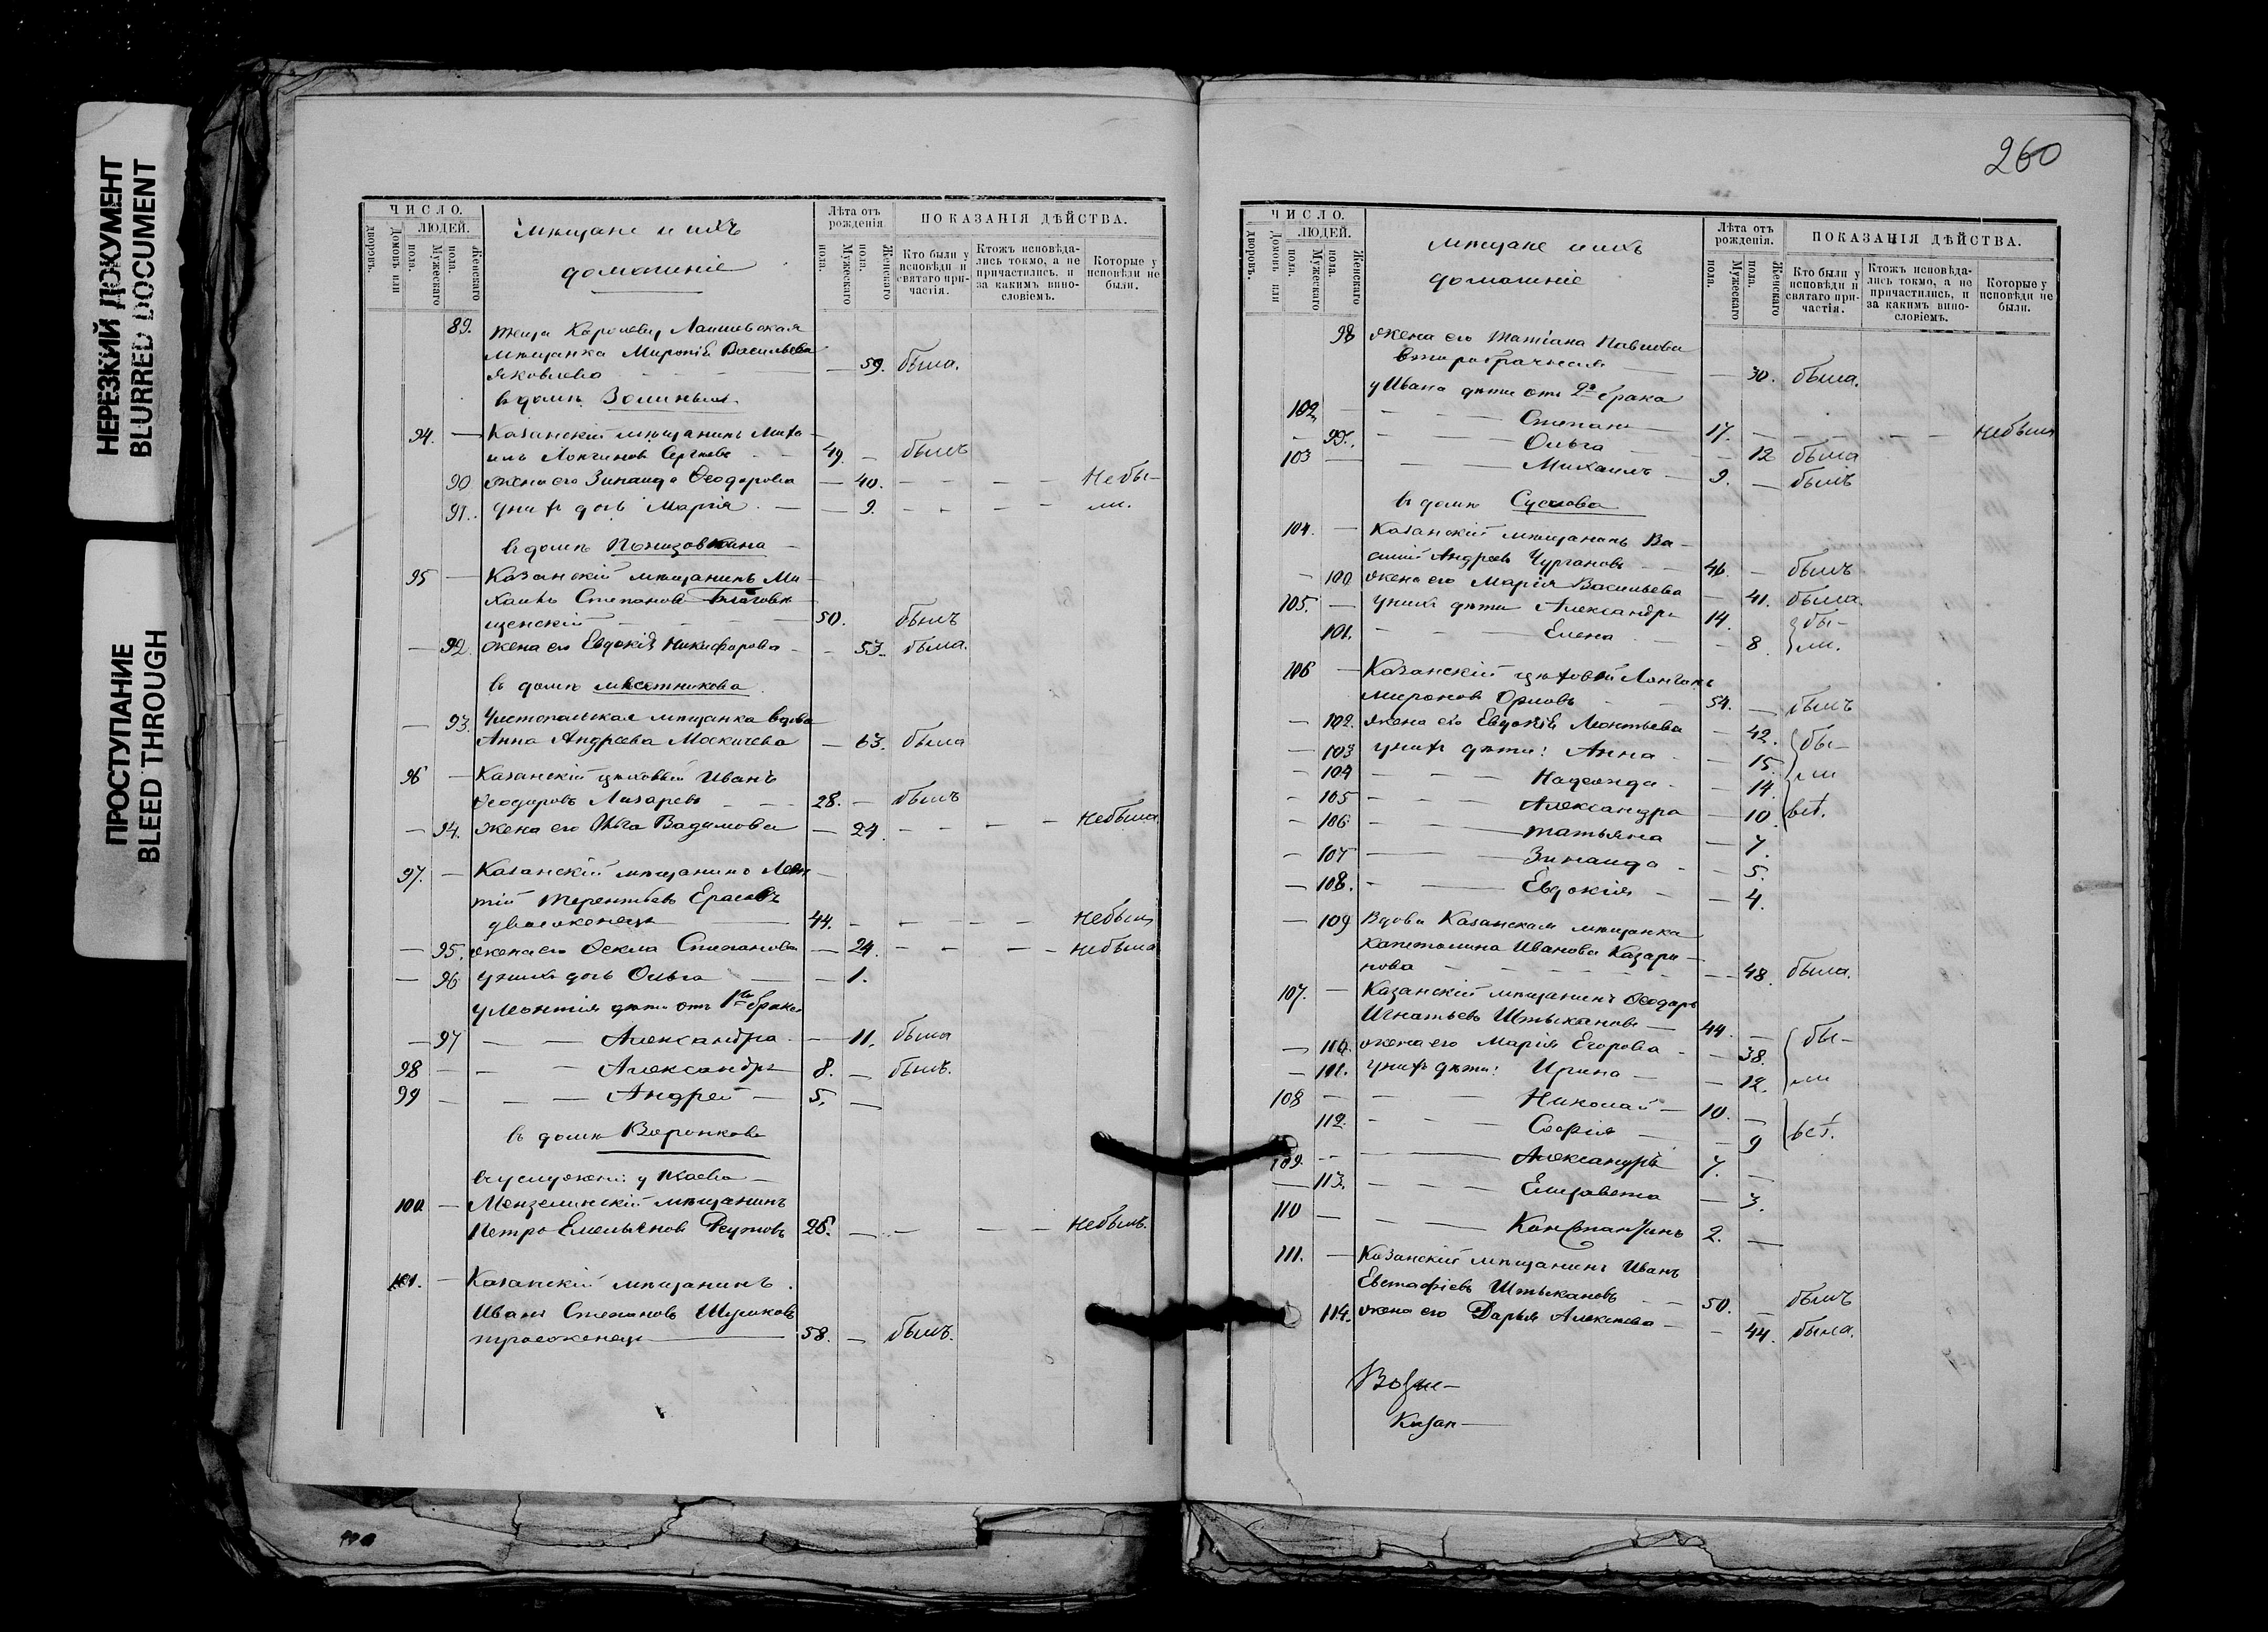 НЕРЕЗКИЙ ДОКУМЕНТ
BLURRED DOCUMENT
ПРОСТУПАНИЕ
BLEED THROUGH
ЧИСЛО.
ЛЮДЕЙ.
Домовъ или дворовъ.
Мужескаго пола.
Женскаго пола.
Мѣщане и ихъ
домашніе
Лѣта отъ рожденія
Мужескаго пола.
Женскаго пола.
ПОКАЗАНІЯ ДѢЙСТВА.
Кто были у исповѣди и святаго причастія.
Ктожъ исповѣдались токмо, а не причастились, и за какимъ винословіемъ.
Которые у исповѣди не были.
89. Лаишевская
мѣщанка Васильева
Яковлева — 59. была.
въ домѣ
94. — Казанскій мѣщанинъ Миха-
илъ Логгинов 49. — былъ
90 жена его Зинаида Ѳеодорова — 40. — — — — Не бы-
91. у нихъ дочь Марія — — 9. — — — — ли.
въ домѣ
95 — Казанскій мѣщанинъ Ми-
хаилъ Степановъ Благовѣ-
щенскій — 50. былъ
— 92. жена его Евдокія Никифорова — — 53. была.
въ домѣ
— 93. Чистопольская мѣщанка вдова
Анна Андреева — 63. была
96 — Казанскій цеховый Иванъ
Ѳеодоровъ Лазаревъ — — — 28. — былъ
— 94. жена его Ольга — 24 — — — — не была
97. — Казанскій мѣщанинъ Леон-
тій Терентьевъ
двоеженецъ — 44. — — — — не былъ
— 95. жена его Ѳекла Степанова — 24. — — — — не была
— 96 у нихъ дочь Ольга — — 1.
у Леонтія дѣти отъ 1го брака
— 97 — — Александра — — 11. была
98 — — — Александръ 8. — былъ.
99 — — — Андрей — 5. —
въ домѣ Воронкова
въ услуженіи у
100 — Мензелинскій мѣщанинъ
Петръ Емельянов 26. — — — — не былъ.
101. — Казанскій мѣщанинъ
Иванъ Степановъ
троеженецъ — 58. — былъ.
260
ЧИСЛО.
ЛЮДЕЙ.
Домовъ или дворовъ.
Мужескаго пола.
Женскаго пола.
Мѣщане и ихъ
домашніе
Лѣта отъ рожденія.
Мужескаго пола.
Женскаго пола.
ПОКАЗАНІЯ ДѢЙСТВА.
Кто были у исповѣди и святаго причастія.
Ктожъ исповѣдались токмо, а не причастились, и за какимъ винословіемъ.
Которые у исповѣди не были.
98 жена его Татіана Павлова
второбрачная — — 30. была.
у Ивана дѣти отъ 2го брака
102 — — — Степанъ 17. — — — — не былъ
— 99. — — Ольга — — 12 была
103 — — — Михаилъ — 9. — былъ
въ домѣ Суслова
104. — Казанскій мѣщанинъ Ва-
силій Андреевъ Чургановъ — 46. — былъ
— 100 жена его Марія Васильева — 41. была.
105. — у нихъ дѣти Александръ 14. бы-
101. — — — Елена — — 8. ли.
106 — Казанскій цеховой Лонгинъ
Мироновъ Орловъ 54. — былъ
— 102. жена его Евдокія Леонтьева — 42. бы-
— 103 у нихъ дѣти: Анна — — 15. ли
— 104 — — — Надежда — — 14 всѣ.
— 105 — — — Александра — 10
— 106 — — — Татьяна — 7.
— 107 — — — Зинаида — — 5.
— 108. — — Евдокія — — 4.
— 109 Вдова Казанская мѣщанка
Капитолина Иванова Казари-
нова — — — 48. была.
107. — Казанскій мѣщанинъ Ѳеодоръ
Игнатьевъ Штыкановъ — 44. — бы-
— 110. жена его Марія Егорова — — 38. ли
— 111. у нихъ дѣти: Ирина — — 12.
108 — — — Николай — 10. — всѣ.
112. — — — Софія — — 9
109. — — — Александръ 7. —
— 113. — — — Елизавета — 3.
110 — — — Константинъ 2. —
111. — Казанскій мѣщанинъ Иванъ
Евстафіевъ Штыкановъ — 50. — былъ
114. жена его Дарья Алексеева — — 44. была.
Казан—